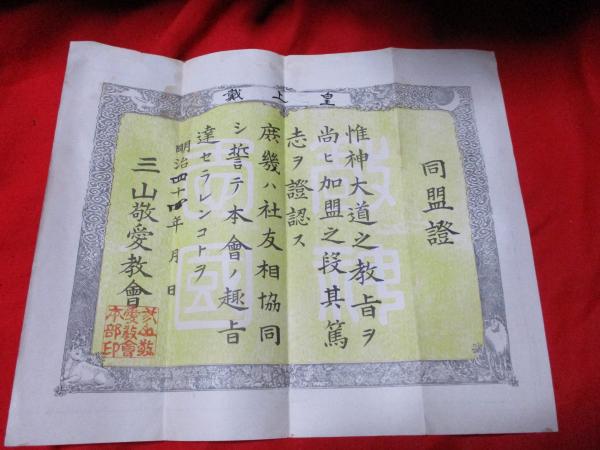 皇上戴
同盟證
惟神大道之教旨ヲ
尚ヒ加盟之段其篤
志ヲ證認ス
庶幾ハ社友相協同
シ誓テ本會ノ趣旨
達セラレンコトヲ
明治四十四年 月 日
三山敬愛教會
敬神
愛國
三山敬
愛教會
本部印